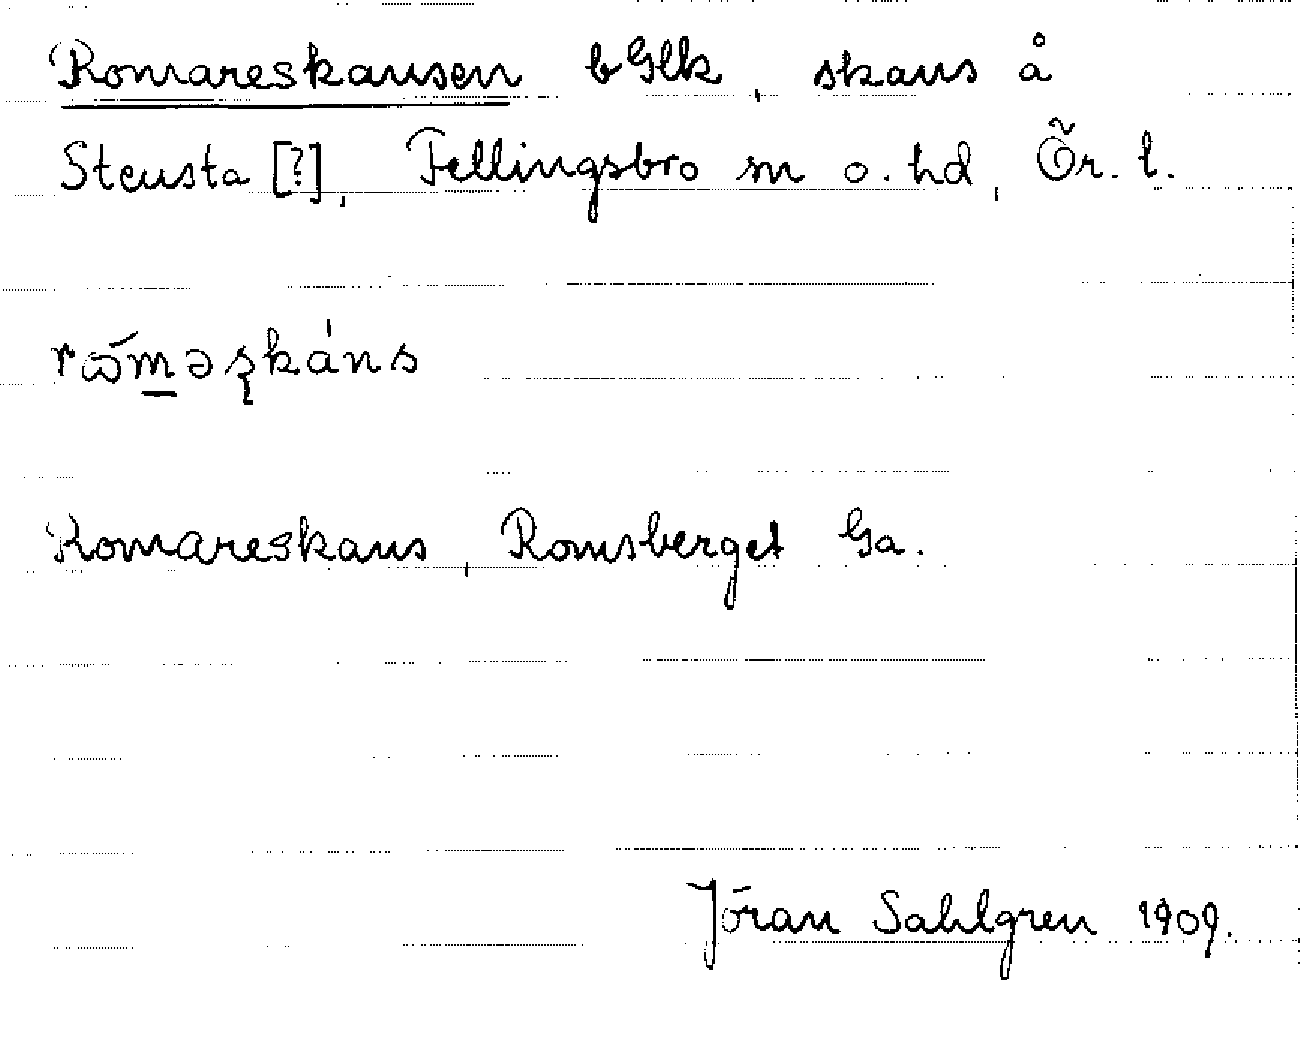 Romareskansen bGlk, skans å
Stensta [?], Fellingsbro sn o. hd, Ör. l.
rω̄́m̲əʂkáns
Romareskans, Romsberget Ga.
Jöran Sahlgren 1909.